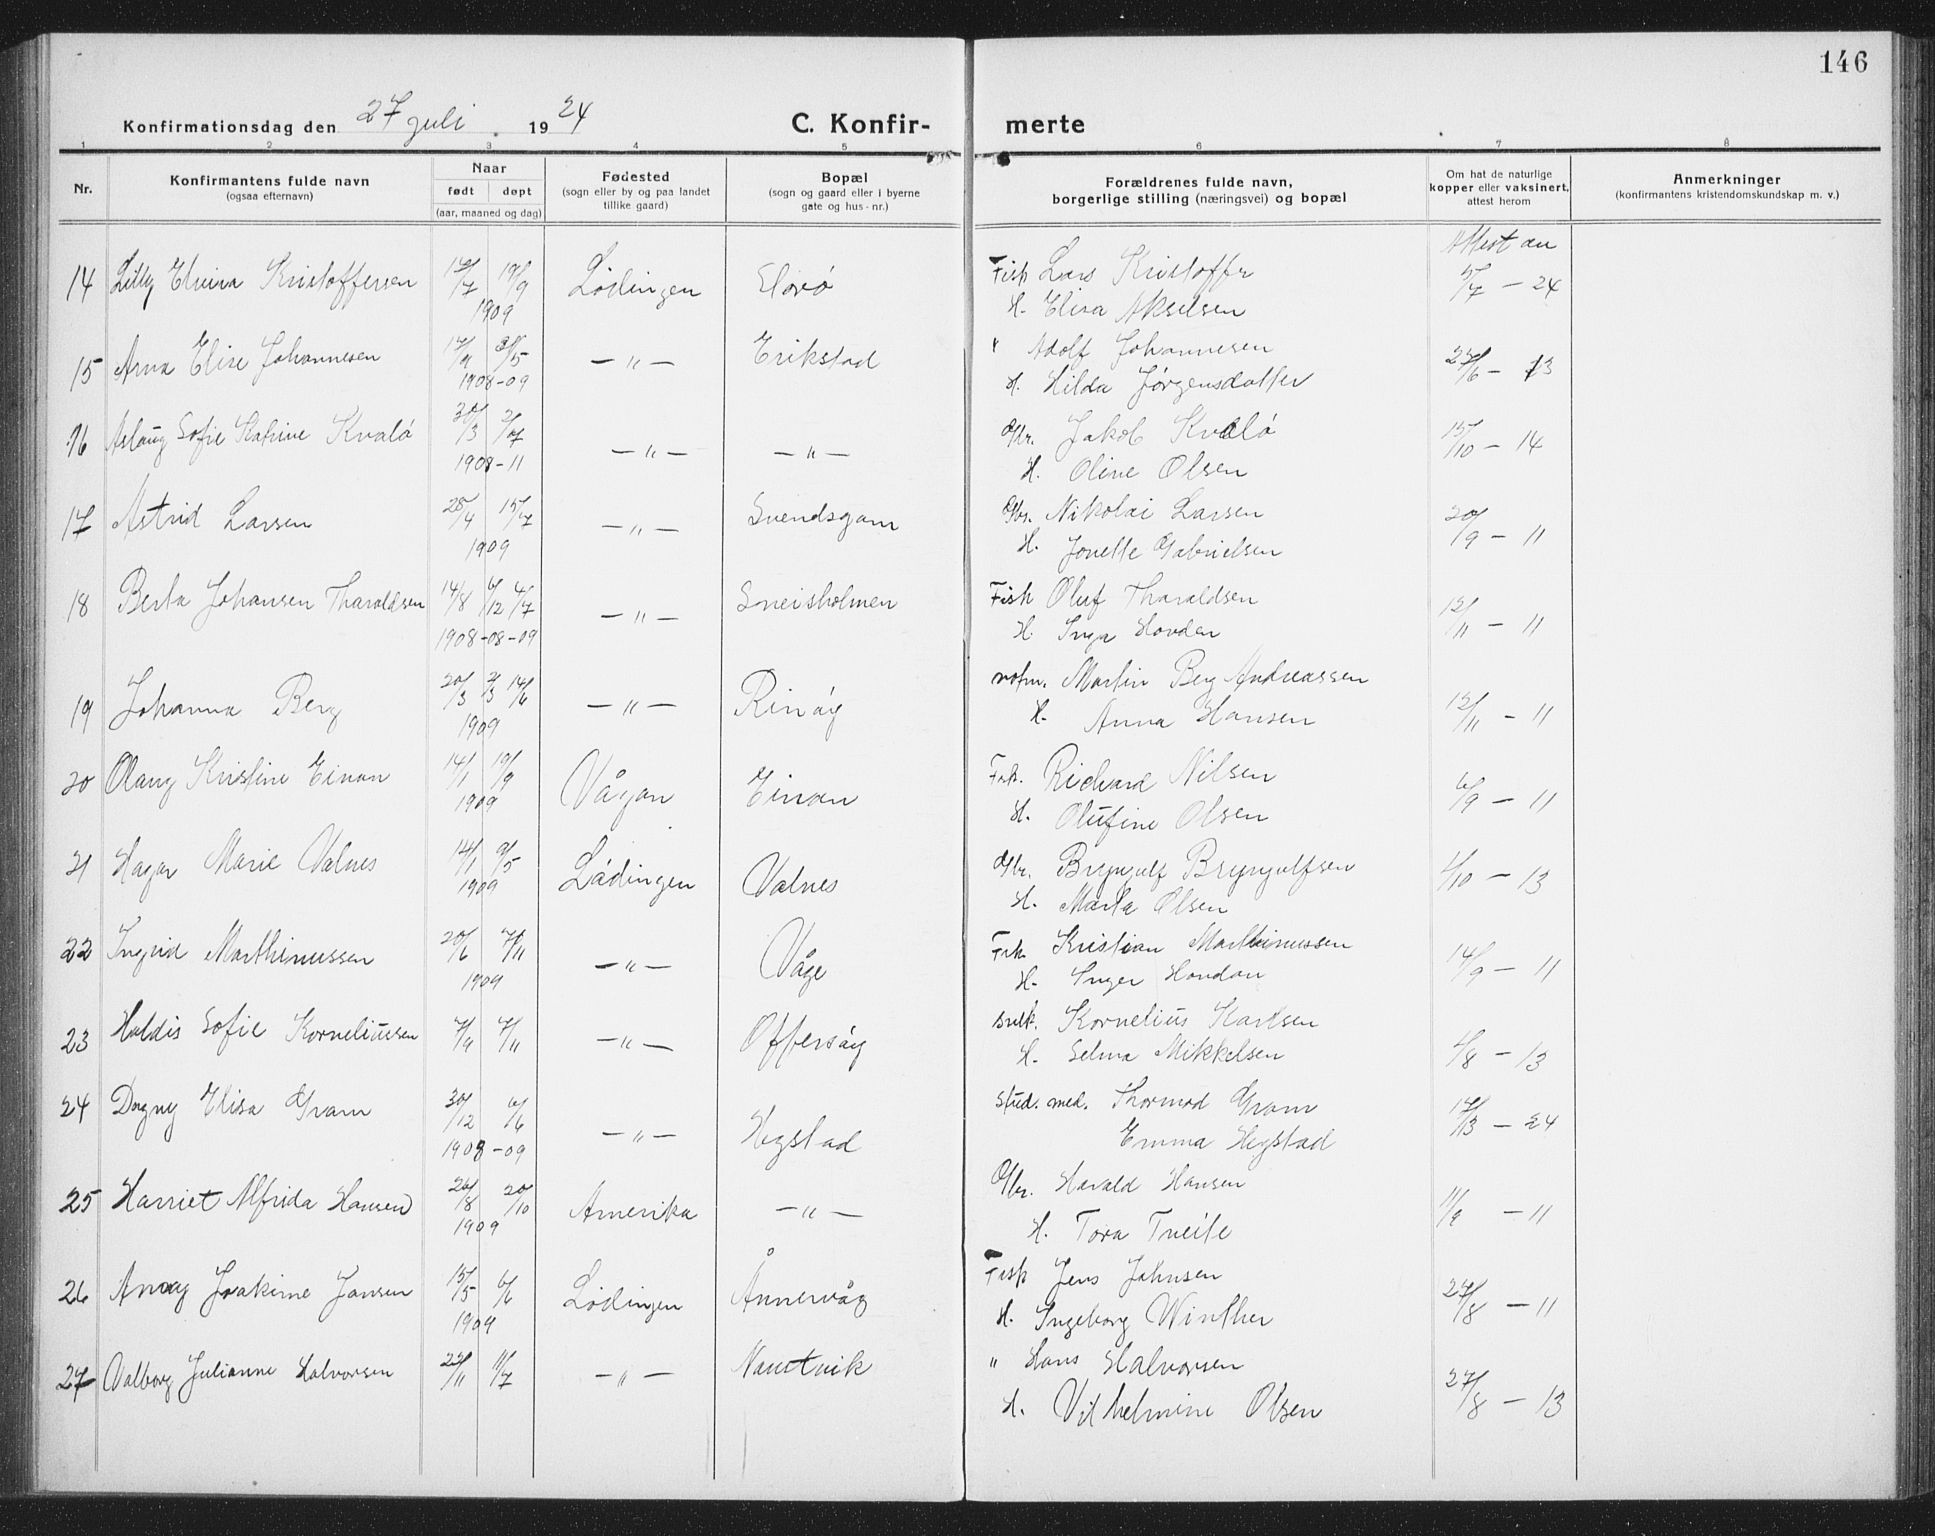 146
Konfirmationsdag den 27 juli 1924 C. Konfir- merte
1 2 3 4 5 6 7 8
Nr. Konfirmantens fulde navn (ogsaa efternavn) Naar født døpt (aar, maaned og dag) Fødested (sogn eller by og paa landet tillike gaard) Bopæl (sogn og gaard eller i byerne gate og hus-nr.) Forældrenes fulde navn, borgerlige stilling (næringsvei) og bopæl Om hat de naturlige kopper eller vaksinert, attest herom Anmerkninger (konfirmantens kristendomskundskap m. v.)
Attest av
14 Lilly Elvira Kristoffersen 19/9 Lødingen Fisk Lars Kristoffr 5/7 - 24
1909 H. Elisa Akselsen
15 Anna Elise Johannesen — " — Erikstad " Adolf Johannesen
1908-09 H. Hilda Jørgensdatter
16 Aslaug Sofie Katrine Kvalø 30/3 2/7 — " — — " — Gbr. Jakob Kvalø 15/10 - 14
1908-11 H. Oline Olsen
17 Astrid Larsen 25/4 15/7 — " — Svendsgam Gbr. Nikolai Larsen 20/9 - 11
1909 H. Jonette Gabrielsen
18 Berta Johansen Tharaldsen 14/8 6/12 4/7 — " — Sneisholmen Fisk Oluf Tharaldsen 12/11 - 11
1908-08-09 H. Inga Hovden
19 Johanna Berg 20/3 2/3 14/6 — " — Rinøy Martin Berg Andreassen 12/11 - 11
1909 H. Anna Hansen
20 Olaug Kristine Einan 14/1 19/9 Vågan Einan Fisk. Richard Nilsen 6/9 - 11
1909 H. Olufine Olsen
21 Hagar Marie Valnes 14/1 9/5 Lødingen Valnes Gbr. Brynjulf Brynjulfsen 4/10 - 13
1909 H. Marta Olsen
22 Ingrid Marthinussen 20/6 7/11 — " — Våge Fisk. Kristian Marthinussen 14/9 - 11
1909 H. Inger Hovdan
23 Haldis Sofie Korneliussen 7/9 7/11 — " — Offersøy Kornelius Karlsen 4/8 - 13
H. Selma Mikkelsen
24 Dagny Elisa Gram 30/12 6/6 — " — Hegstad stud. med. Thormod Gram
1908-09 Emma Hegstad
25 Harriet Alfrida Hansen 26/8 20/10 Amerika — " — Gbr. Harald Hansen 11/9 - 11
1909 H. Tora Tveite
26 Annay Joakime Jansen 15/5 6/6 Lødingen Ånnervåg Fisk Jens Johnsen 27/8 - 11
1909 H. Ingeborg Winther
27 Valborg Julianne Halvorsen 22/11 11/7 — " — Nautvik " Hans Halvorsen 27/8 - 13
H. Vilhelmine Olsen